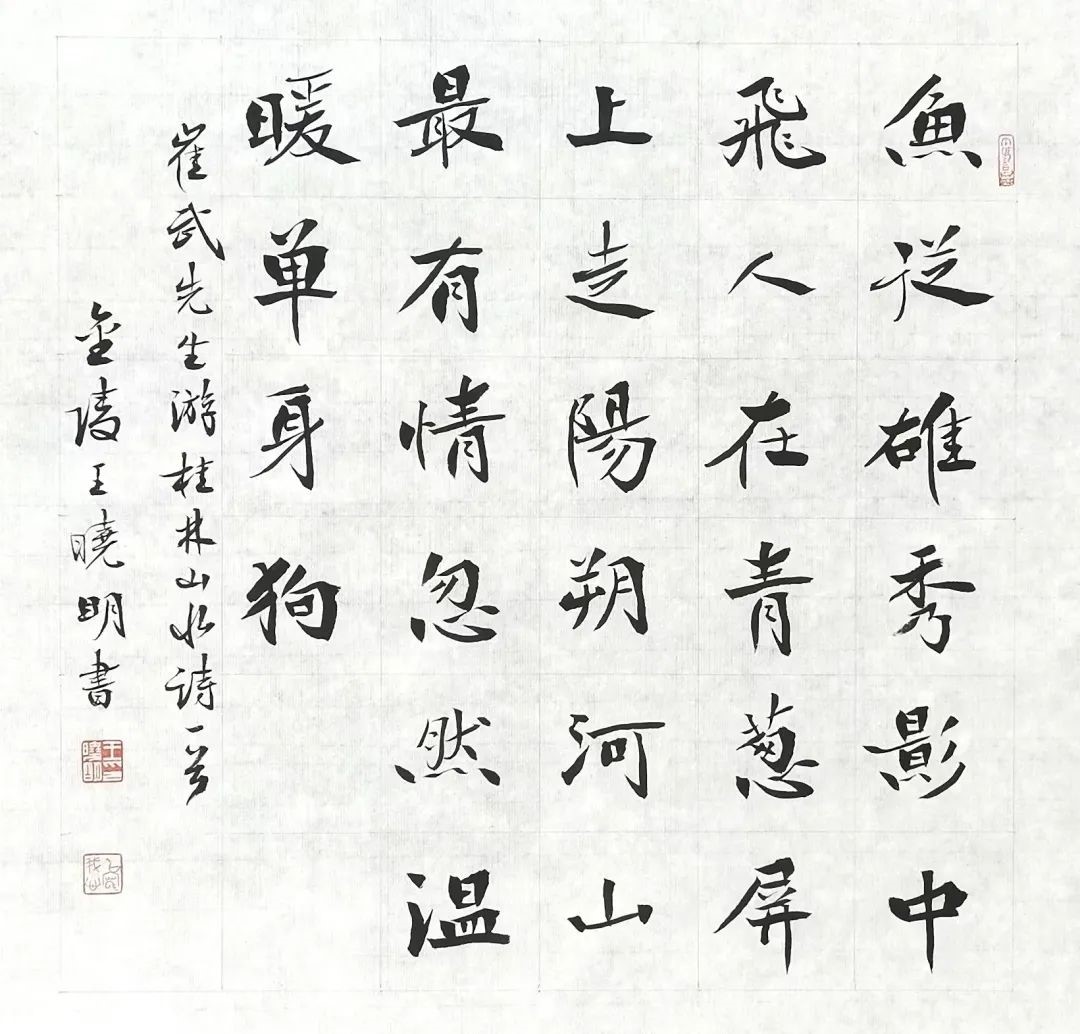 魚從雄秀影中
飛人在青葱屏
上走陽朔河山
最有情忽然温
暖单身狗
崔武先生游桂林山水诗一首
金陵王曉明書